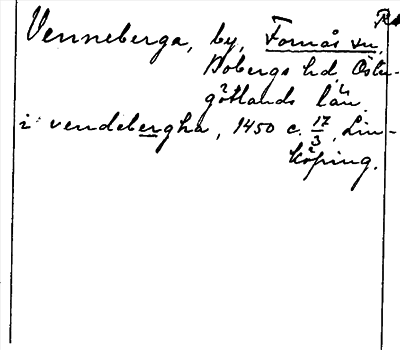 Venneberga, by, Fornåsa sn,
Bobergs hd, Öster-
götlands län.
i vendebergha, 1450 c. 17/3, Lin-
köping.